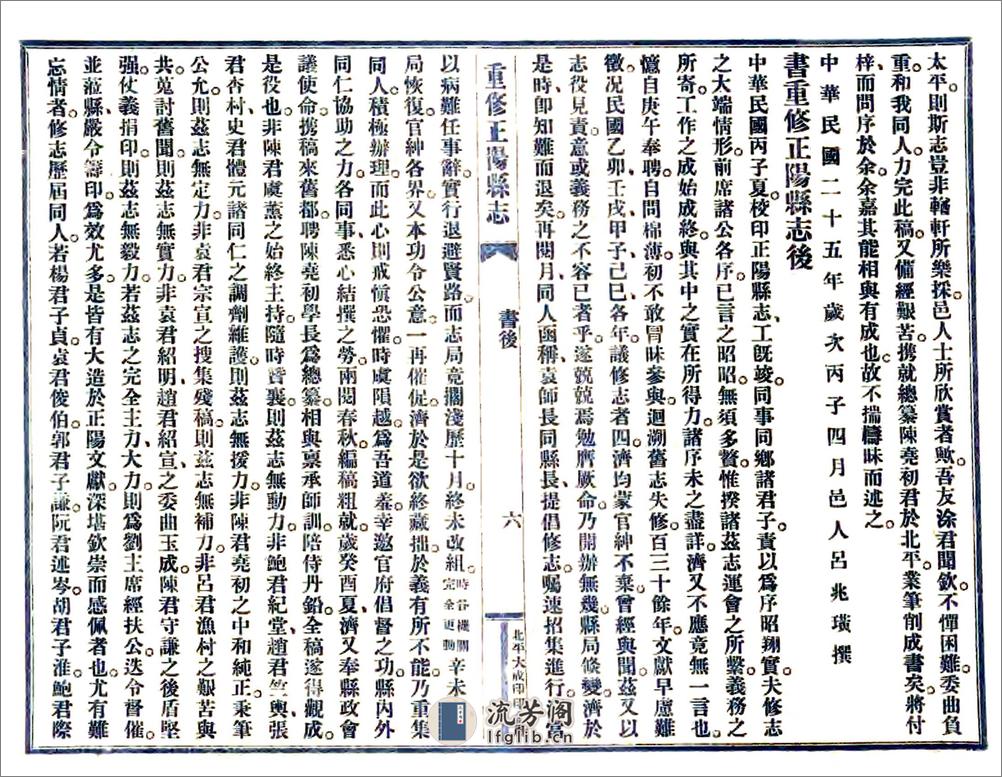 太平則斯志豈非輶軒所樂採邑人士所欣賞者歟吾友涂君聞欽不憚困難委曲負
重和我同人力完此稿又備經艱苦携就總纂陳堯初君於北平業筆削成書矣將付
梓而問序於余余嘉其能相與有成也故不揣檮昧而述之
中華民國二十五年歲次丙子四月邑人呂兆璜撰
書重修正陽縣志後
中華民國丙子夏校印正陽縣志工既竣同事同鄉諸君子責以為序昭翔實夫修志
之大端情形前席諸公各序已言之昭昭無須多贅惟揆諸茲志運會之所繫義務之
所寄工作之成始成終與其中之實在所得力諸序未之盡詳濟又不應竟無一言也
憶自庚午奉聘自問棉薄初不敢冒昧參與迴溯舊志失修百三十餘年文獻早慮難
徵況民國乙卯壬戌甲子己巳各年議修志者四濟均蒙官紳不棄曾經與聞茲又以
志役見責意或義務之不容已者乎遂兢兢焉勉膺厥命乃開辦無幾縣局倐變濟於
是時即知難而退矣再閱月同人函稱袁師長同縣長提倡修志囑速招集進行當
重修正陽縣志
書後
六
北平大成印
以病難任事辭實行退避賢路而志局竟擱淺歷十月終未改組時谷機關完全更動辛未
局恢復官紳各界又本功令公意一再催促濟於是欲終藏拙於義有所不能乃重集
同人積極辦理而此心則戒愼恐懼時虞隕越為吾道羞幸邀官府倡督之功縣內外
同仁協助之力各同事悉心結撰之勞兩閱春秋編稿粗就歲癸酉夏濟又奉縣政會
議使命携稿來舊都聘陳堯初學長為總纂相與稟承師訓陪侍丹鉛全稿遂得觀成
是役也非陳君虞薰之始終主持隨時贊襄則茲志無動力非鮑君紀堂趙君竺輿張
君杏村史君體元諸同仁之調劑維護則茲志無援力非陳君堯初之中和純正秉筆
公允則茲志無定力非袁君宗宣之搜集殘稿則茲志無補力非呂君漁村之艱苦與
共蒐討舊聞則茲志無實力非袁君紹明趙君紹宣之委曲玉成陳君守謙之後盾堅
强仗義捐印則茲志無毅力若茲志之完全主力大力則為劉主席經扶公迭令督催
並蒞縣嚴令籌印為效尤多是皆有大造於正陽文獻深堪欽崇而感佩者也尤有難
忘情者修志歷屆同人若楊君子貞袁君俊伯郭君子謙阮君述岑胡君子淮鮑君際
流芳阁
lfglib.cn